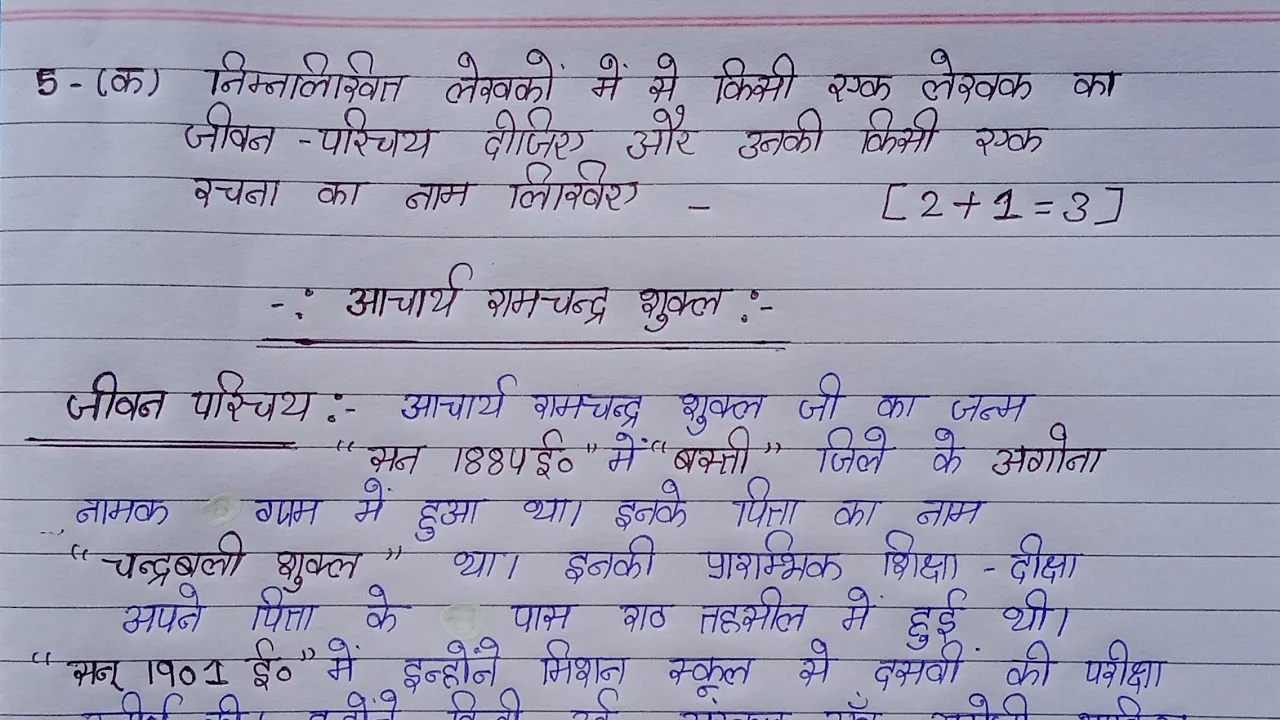 5-(क) निम्नलिखित लेखकों में से किसी एक लेखक का
जीवन-परिचय दीजिए और उनकी किसी एक
रचना का नाम लिखिए - [2+1=3]
-: आचार्य रामचन्द्र शुक्ल :-
जीवन परिचय :- आचार्य रामचन्द्र शुक्ल जी का जन्म
“सन 1884ई०” में “बस्ती” जिले के अगोना
नामक ग्राम में हुआ था। इनके पिता का नाम
“चन्द्रबली शुक्ल” था। इनकी प्रारम्भिक शिक्षा-दीक्षा
अपने पिता के पास राठ तहसील में हुई थी।
“सन् 1901 ई०” में इन्होंने मिशन स्कूल से दसवीं की परीक्षा